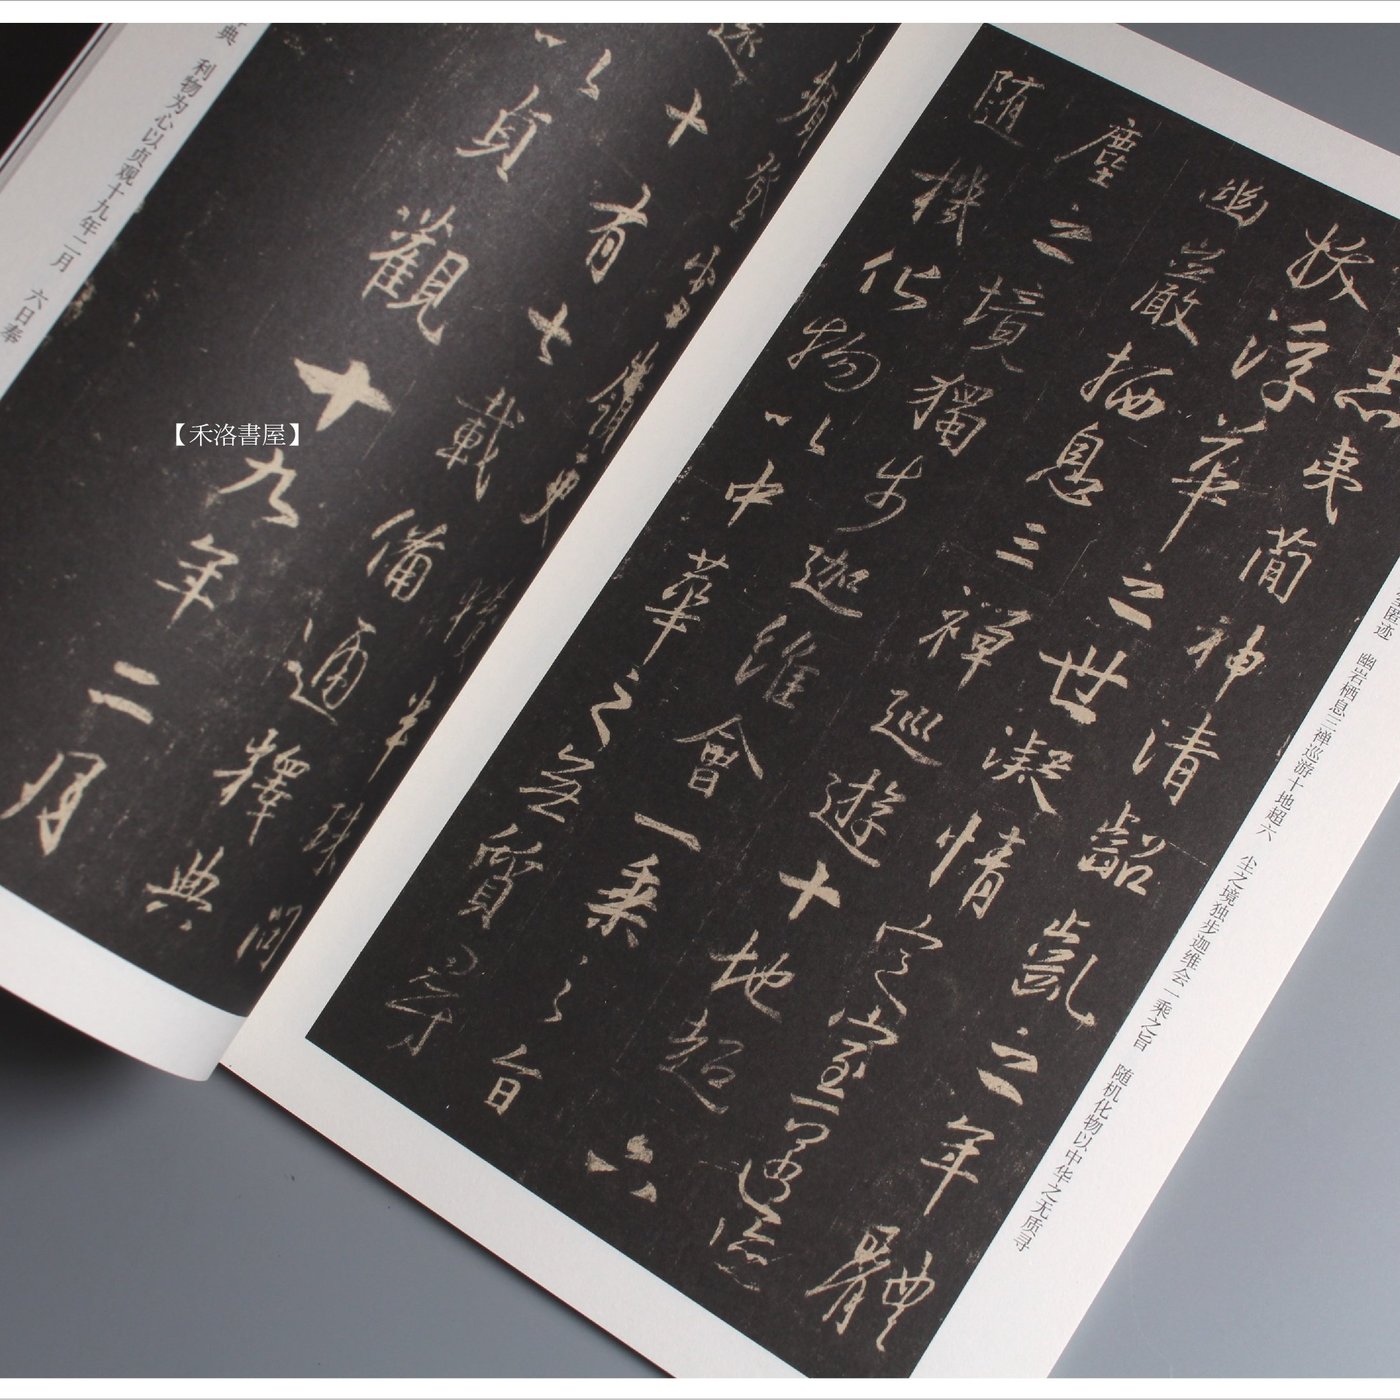 匿迹　幽岩栖息三禅巡游十地超六　尘之境独步迦维会一乘之旨　随机化物以中华之无质寻
志夷簡神清齠齔之年體
拔浮華之世凝情定室匿迹
幽巖栖息三禪巡遊十地超六
塵之境獨步迦維會一乘之旨
隨機化物以中華之無質尋
頻登雪嶺更獲半珠問
還十有七載備通釋典
以貞觀十九年二月
典　利物为心以贞观十九年二月　六日奉
【禾洛書屋】